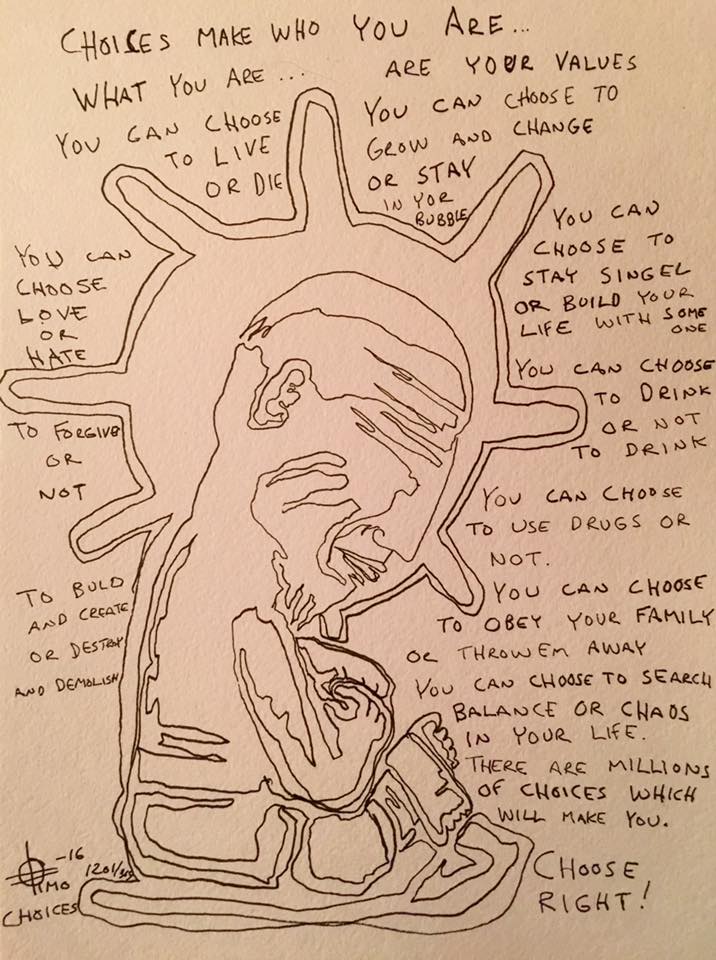 CHOICES MAKE WHO YOU ARE...
WHAT YOU ARE... ARE YOUR VALUES
YOU CAN CHOOSE
TO LIVE
OR DIE
YOU CAN CHOOSE TO
GROW AND CHANGE
OR STAY
IN YOR
BUBBLE
YOU CAN
CHOOSE
LOVE
OR
HATE
TO FORGIVE
OR
NOT
TO BULD
AND CREATE
OR DESTROY
AND DEMOLISH
YOU CAN
CHOOSE TO
STAY SINGEL
OR BUILD YOUR
LIFE WITH SOME
ONE
YOU CAN CHOOSE
TO DRINK
OR NOT
TO DRINK
YOU CAN CHOOSE
TO USE DRUGS OR
NOT.
YOU CAN CHOOSE
TO OBEY YOUR FAMILY
OR THROW EM AWAY
YOU CAN CHOOSE TO SEARCH
BALANCE OR CHAOS
IN YOUR LIFE.
THERE ARE MILLIONS
OF CHOICES WHICH
WILL MAKE YOU.
CHOOSE
RIGHT!
-16
TIMO 1201/365
CHOICES